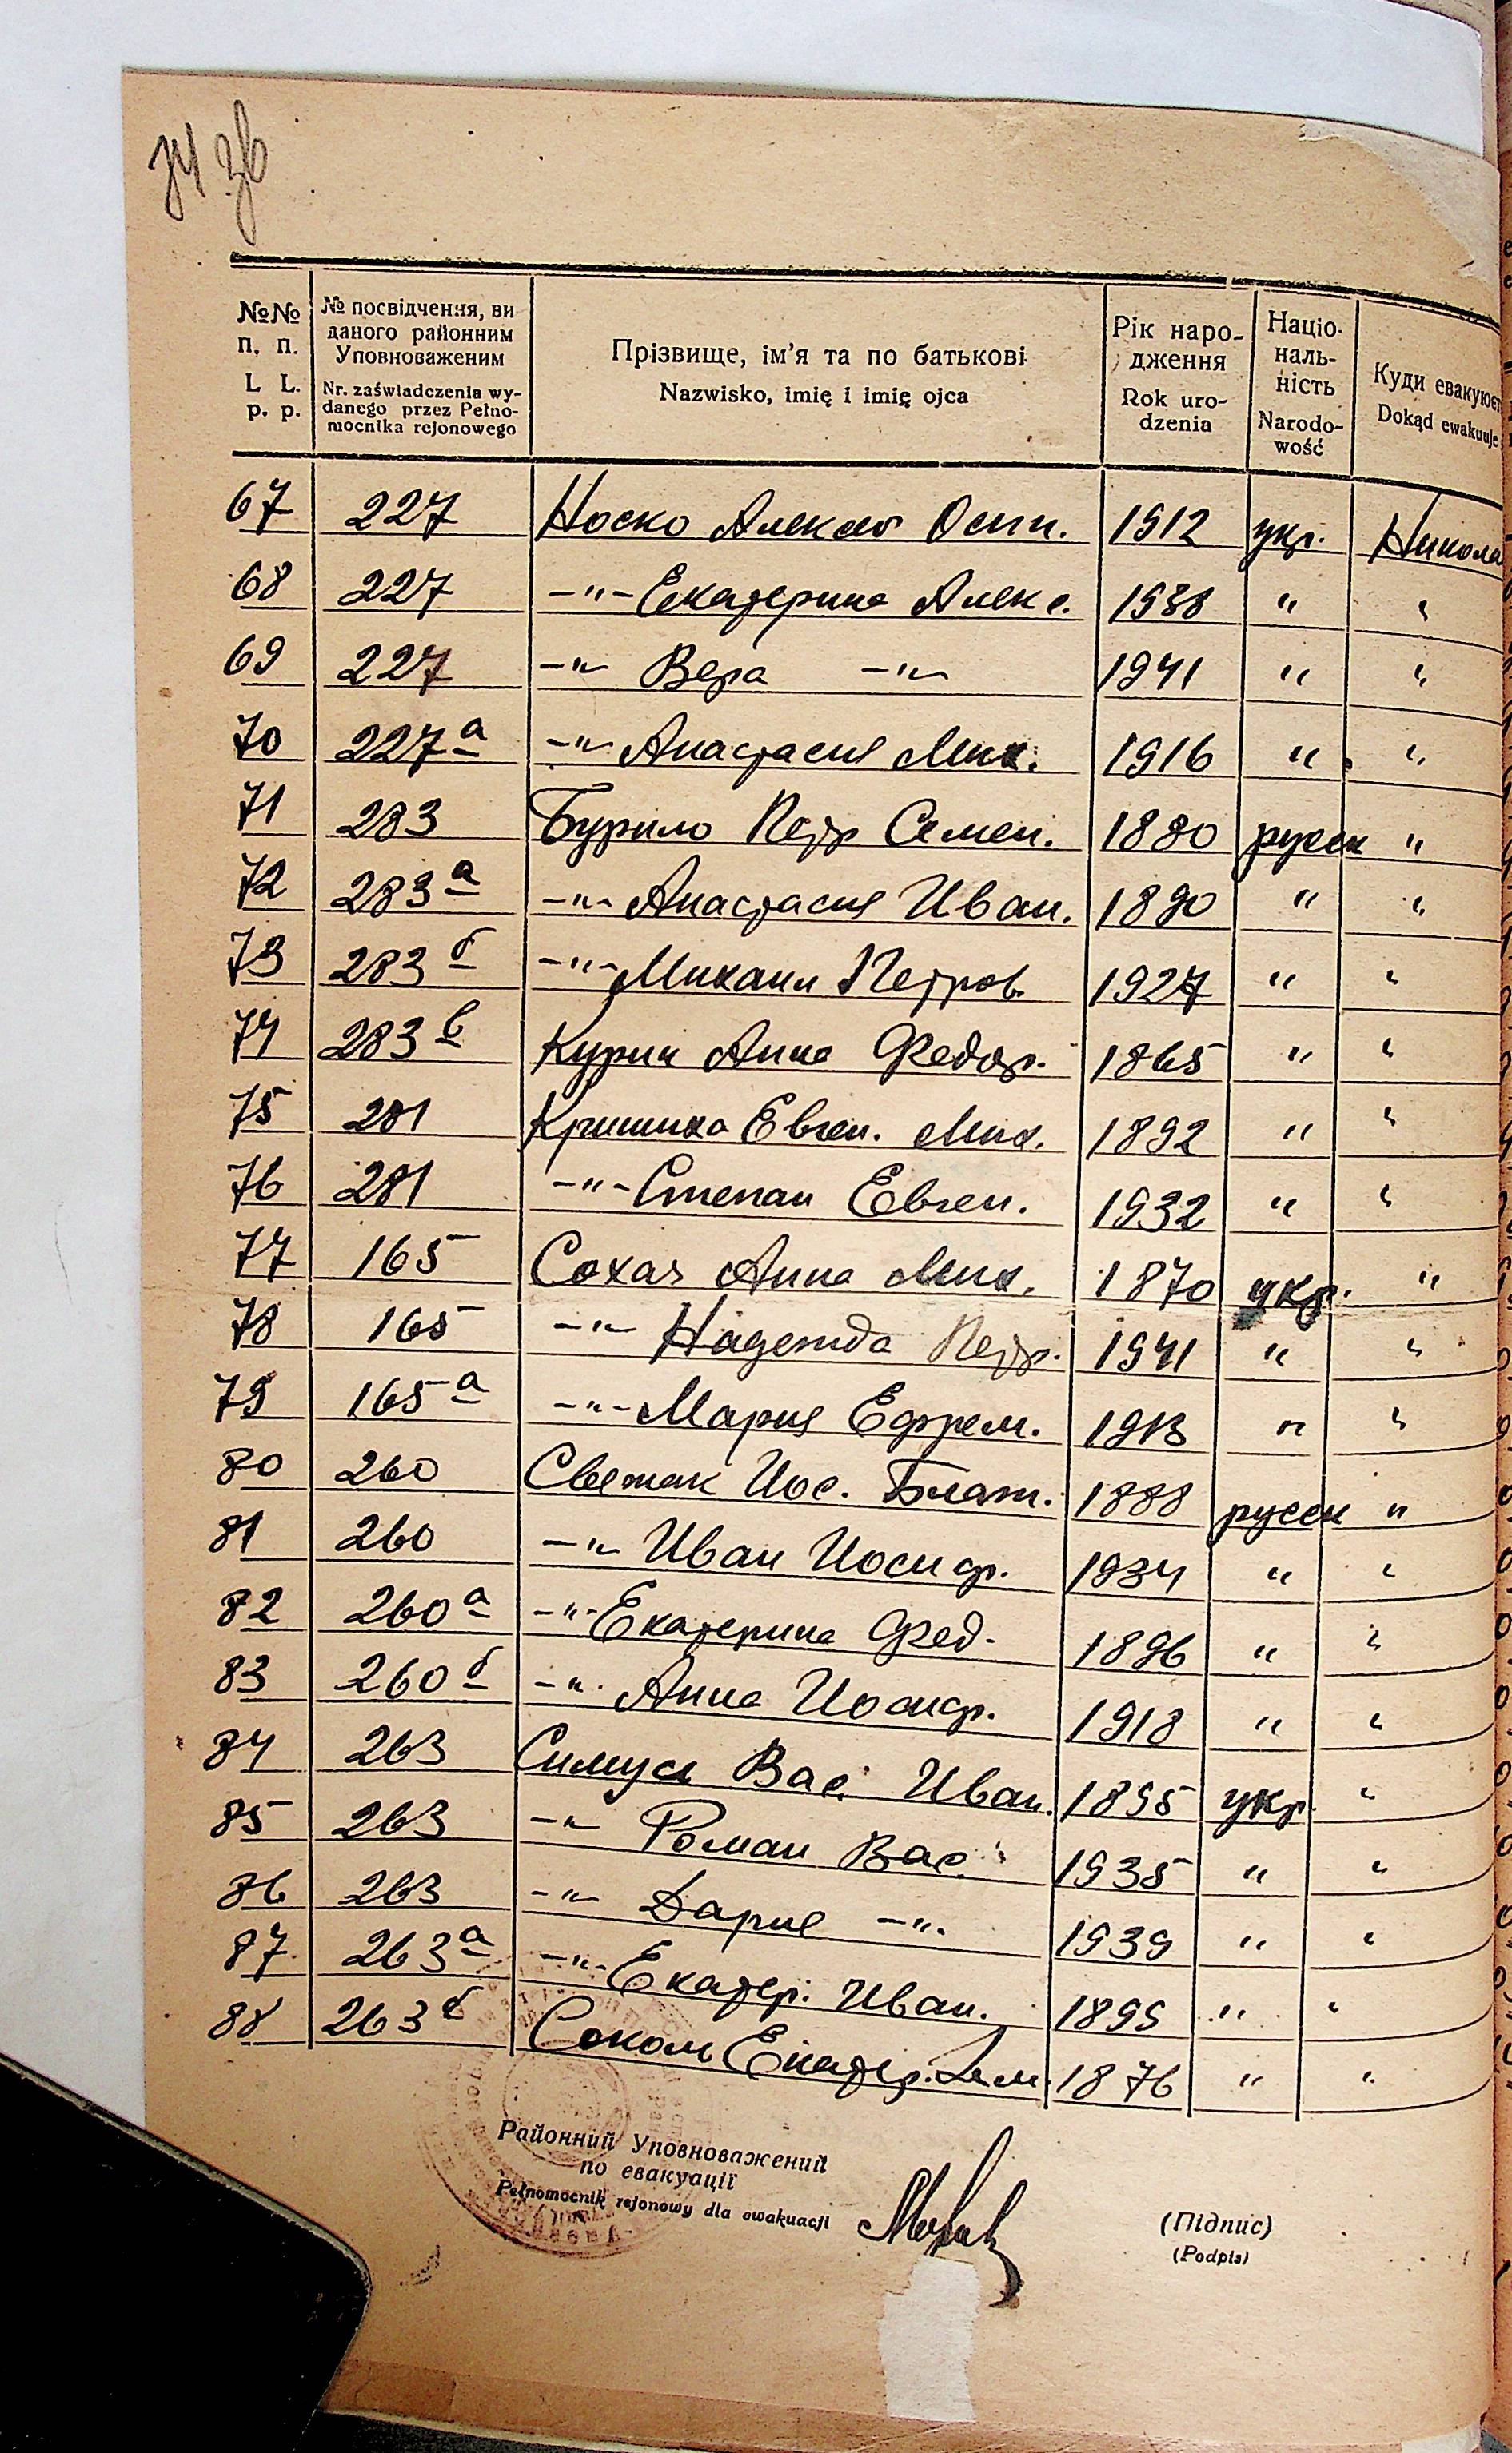 74 зв
№№ п. п.
L. L. p. p.
№ посвідчення, ви
даного районним
Уповноваженим
Nr. zaświadczenia wy-
danego przez Pełno-
mocnika rejonowego
Прізвище, ім'я та по батькові
Nazwisko, imię i imię ojca
Рік наро-
дження
Rok uro-
dzenia
Націо-
наль-
ність
Narodo-
wość
Куди евакуюєт
Dokąd ewakuuje
67 227 Носко Алексей Осип. 1912 укр. Никола
68 227 -"- Екатерина Алекс. 1938 " "
69 227 -"- Вера -"- 1941 " "
70 227а -"- Анастасия Мих. 1916 " "
71 283 Бурило Петр Семен. 1880 русск "
72 283а -"- Анастасия Иван. 1890 " "
73 283б -"- Михаил Петров. 1927 " "
74 283в Курил Анна Федор. 1865 " "
75 281 Евген. Мих. 1892 " "
76 281 -"- Степан Евген. 1932 " "
77 165 Сохач Анна Мих. 1870 укр. "
78 165 -"- Надежда Петр. 1941 " "
79 165а -"- Мария Ефрем. 1913 " "
80 260 Свежак Иос. Блаж. 1888 русск "
81 260 -"- Иван Иосиф. 1934 " "
82 260а -"- Екатерина Фед. 1896 " "
83 260б -"- Анна Иосиф. 1918 " "
84 263 Вас. Иван. 1895 укр. "
85 263 -"- Роман Вас. 1935 " "
86 263 -"- Дария -"- 1939 " "
87 263а -"- Екатер. Иван. 1899 " "
88 263б Сокол Екатер. Дем. 1876 " "
Районний Уповноважений
по евакуації
Pełnomocnik rejonowy dla ewakuacji
(Підпис)
(Podpis)